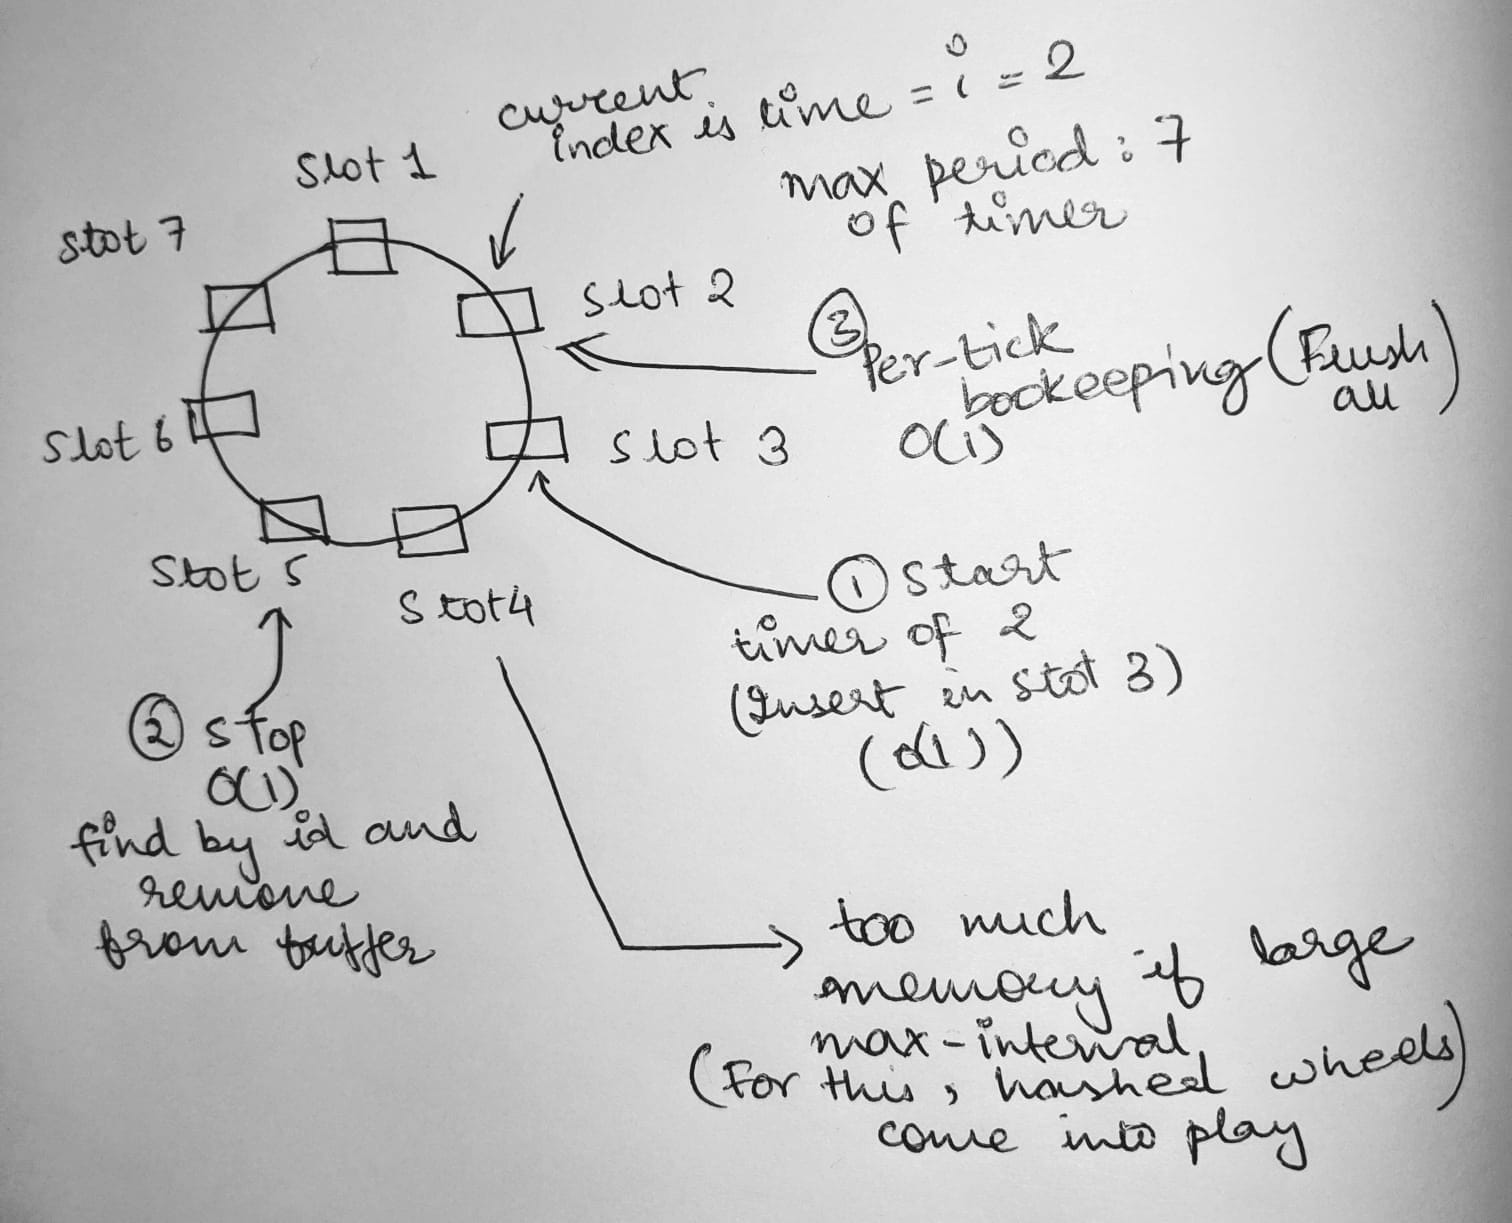 current
index is time = i = 2
max period : 7
of timer
Slot 1
Slot 7
Slot 2
③
Per-tick
bookeeping (Flush
all)
O(1)
Slot 3
Slot 6
Slot 5
Slot 4
① Start
timer of 2
(Insert in slot 3)
(O(1))
② Stop
O(1)
find by id and
remove
from buffer
too much
memory if large
max-interval
(For this, hashed wheels)
come into play